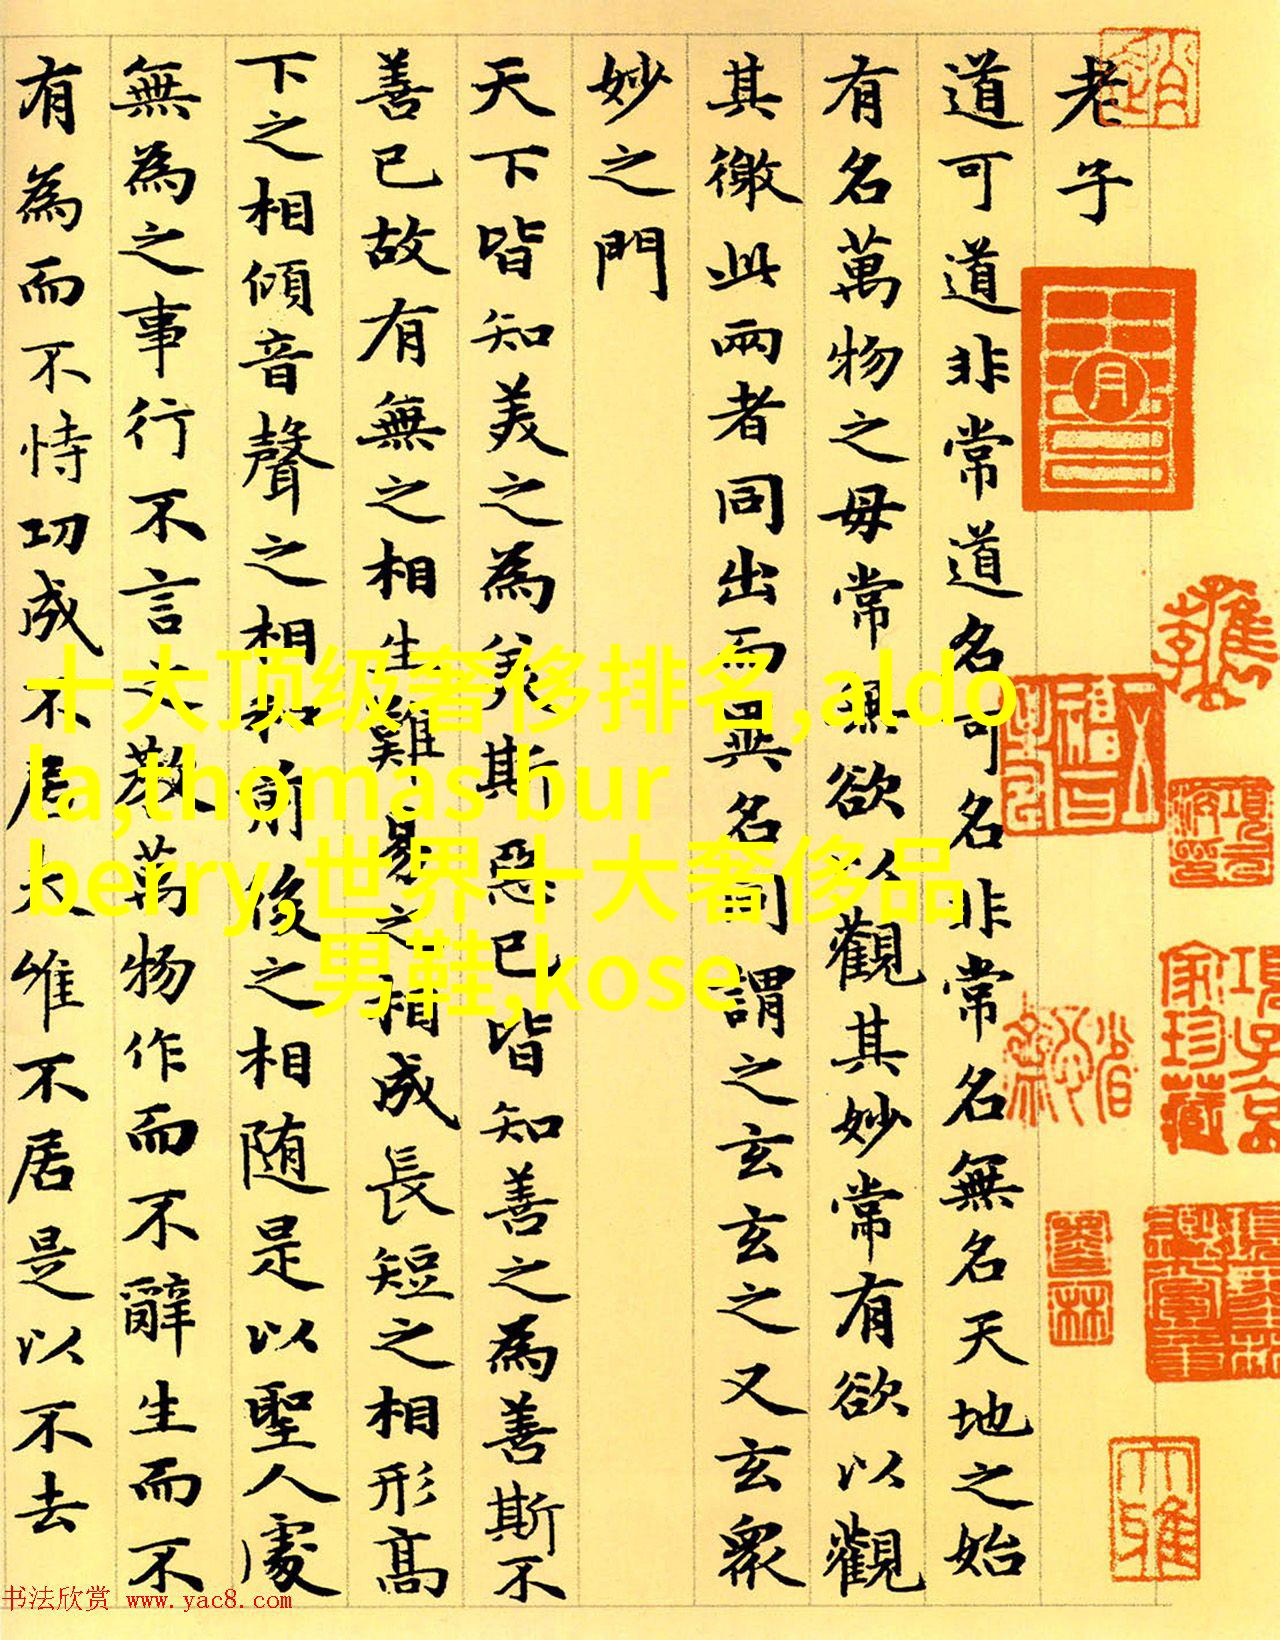 老子
道可道非常道名可名非常名無名天地之始
有名萬物之母常無欲以觀其妙常有欲以觀
其徼此兩者同出而異名同謂之玄玄之又玄衆
妙之門
天下皆知美之為美斯惡已皆知善之為善斯不
善已故有無之相生難易之相成長短之相形髙
下之相傾音聲之相和前後之相随是以聖人處
無為之事行不言之教萬物作而不辭生而不
有為而不恃功成不居夫唯不居是以不去
項子京
家珍藏
十大顶级奢侈排名,aldo
la,thomas bur
berry,世界十大奢侈品
男鞋,kose
书法欣赏 www.yac8.com